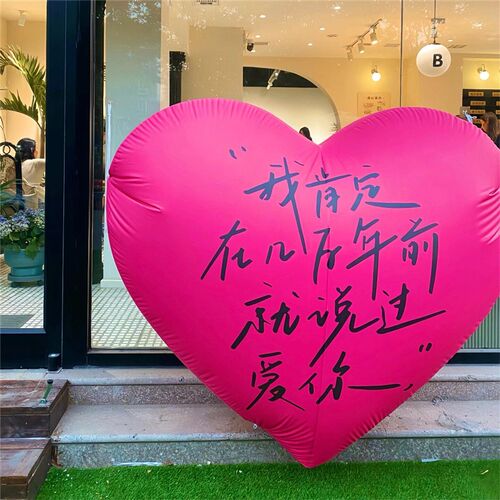 B
"我肯定
在几百年前
就说过
爱你."